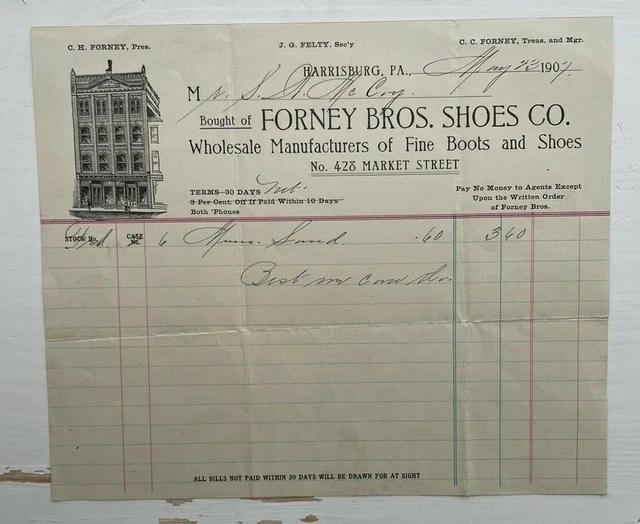 C. H. FORNEY, Pres. J. G. FELTY, Sec'y C. C. FORNEY, Treas. and Mgr.
HARRISBURG, PA., May 23 1907
Mr. S. A. McCoy.
Bought of FORNEY BROS. SHOES CO.
Wholesale Manufacturers of Fine Boots and Shoes
No. 428 MARKET STREET
TERMS—30 DAYS Net.
3 Per Cent. Off If Paid Within 10 Days
Both 'Phones
Pay No Money to Agents Except
Upon the Written Order
of Forney Bros.
STOCK No. CASE No. 6 .60 3 60
Best we can do
ALL BILLS NOT PAID WITHIN 30 DAYS WILL BE DRAWN FOR AT SIGHT